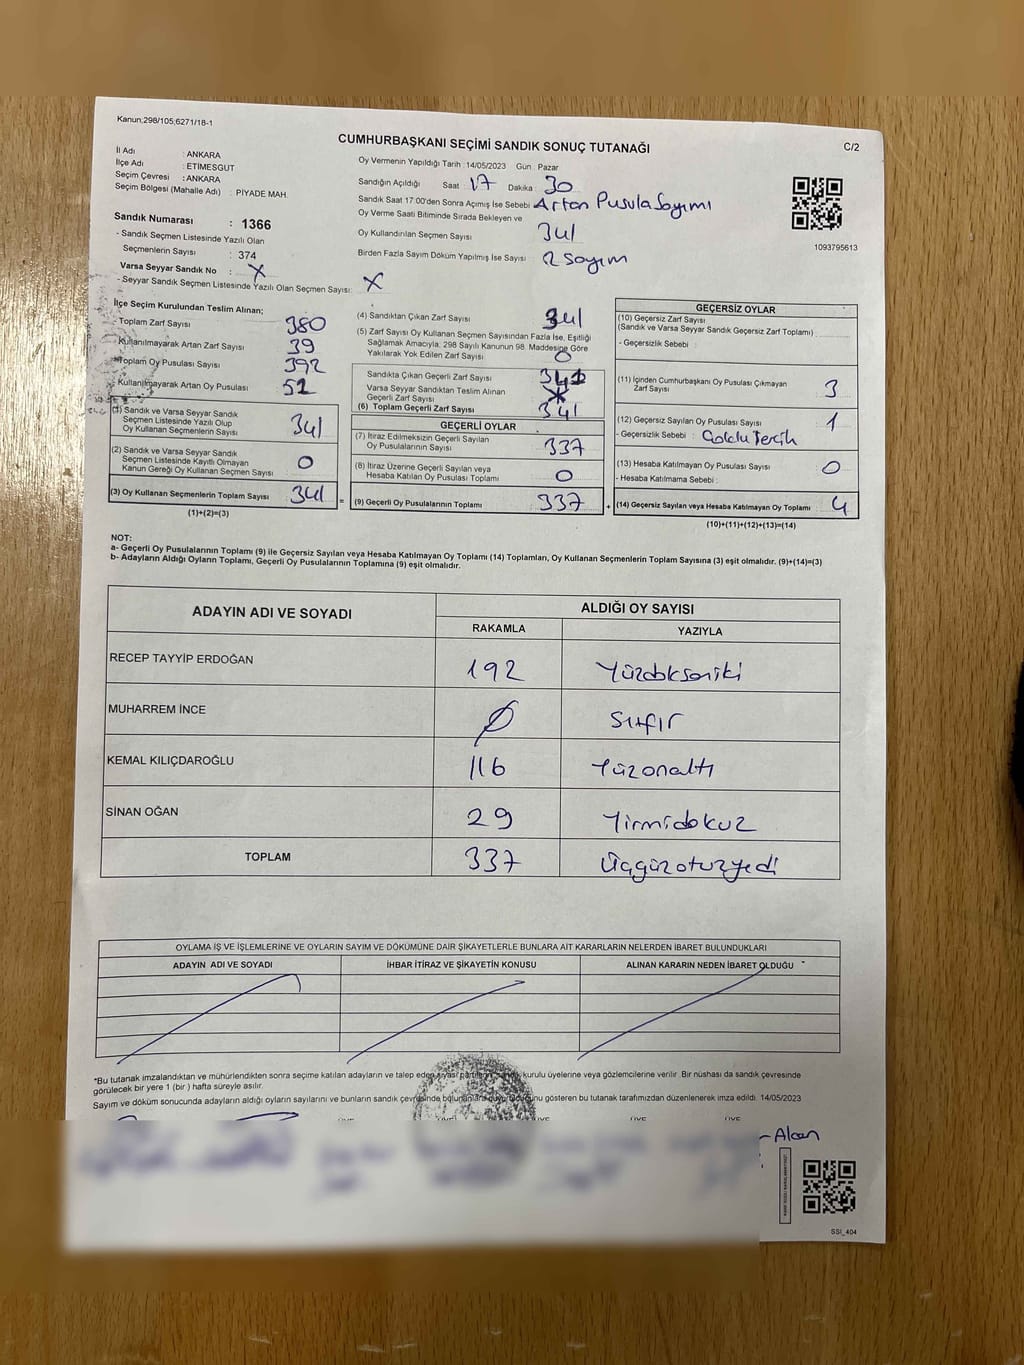 Kanun;298/105;6271/18-1
CUMHURBAŞKANI SEÇİMİ SANDIK SONUÇ TUTANAĞI
C/2
İl Adı : ANKARA
İlçe Adı : ETİMESGUT
Seçim Çevresi : ANKARA
Seçim Bölgesi (Mahalle Adı) : PİYADE MAH.
Sandık Numarası : 1366
- Sandık Seçmen Listesinde Yazılı Olan
Seçmenlerin Sayısı : 374
Varsa Seyyar Sandık No : X
- Seyyar Sandık Seçmen Listesinde Yazılı Olan Seçmen Sayısı: X
Oy Vermenin Yapıldığı Tarih :14/05/2023 Gün : Pazar
Sandığın Açıldığı Saat : 17 Dakika : 30
Sandık Saat 17:00'den Sonra Açımış İse Sebebi : Artan Pusula Sayımı
Oy Verme Saati Bitiminde Sırada Bekleyen ve
Oy Kullandırılan Seçmen Sayısı 341
Birden Fazla Sayım Döküm Yapılmış İse Sayısı : 2 Sayım
1093795613
İlçe Seçim Kurulundan Teslim Alınan;
- Toplam Zarf Sayısı 380
- Kullanılmayarak Artan Zarf Sayısı 39
- Toplam Oy Pusulası Sayısı 392
- Kullanılmayarak Artan Oy Pusulası 51
(1) Sandık ve Varsa Seyyar Sandık
Seçmen Listesinde Yazılı Olup
Oy Kullanan Seçmenlerin Sayısı 341
(2) Sandık ve Varsa Seyyar Sandık
Seçmen Listesinde Kayıtlı Olmayan
Kanun Gereği Oy Kullanan Seçmen Sayısı 0
(3) Oy Kullanan Seçmenlerin Toplam Sayısı 341 =
(1)+(2)=(3)
(4) Sandıktan Çıkan Zarf Sayısı 341
(5) Zarf Sayısı Oy Kullanan Seçmen Sayısından Fazla İse, Eşitliği
Sağlamak Amacıyla, 298 Sayılı Kanunun 98. Maddesine Göre
Yakılarak Yok Edilen Zarf Sayısı 0
Sandıkta Çıkan Geçerli Zarf Sayısı 341
Varsa Seyyar Sandıktan Teslim Alınan
Geçerli Zarf Sayısı
(6) Toplam Geçerli Zarf Sayısı 341
GEÇERLİ OYLAR
(7) İtiraz Edilmeksizin Geçerli Sayılan
Oy Pusulalarının Sayısı 337
(8) İtiraz Üzerine Geçerli Sayılan veya
Hesaba Katılan Oy Pusulası Toplamı 0
(9) Geçerli Oy Pusulalarının Toplamı 337 +
GEÇERSİZ OYLAR
(10) Geçersiz Zarf Sayısı
(Sandık ve Varsa Seyyar Sandık Geçersiz Zarf Toplamı)
- Geçersizlik Sebebi :
(11) İçinden Cumhurbaşkanı Oy Pusulası Çıkmayan
Zarf Sayısı 3
(12) Geçersiz Sayılan Oy Pusulası Sayısı 1
- Geçersizlik Sebebi : Çoklu Tercih
(13) Hesaba Katılmayan Oy Pusulası Sayısı 0
- Hesaba Katılmama Sebebi :
(14) Geçersiz Sayılan veya Hesaba Katılmayan Oy Toplamı 4
(10)+(11)+(12)+(13)=(14)
NOT:
a- Geçerli Oy Pusulalarının Toplamı (9) ile Geçersiz Sayılan veya Hesaba Katılmayan Oy Toplamı (14) Toplamları, Oy Kullanan Seçmenlerin Toplam Sayısına (3) eşit olmalıdır. (9)+(14)=(3)
b- Adayların Aldığı Oyların Toplamı, Geçerli Oy Pusulalarının Toplamına (9) eşit olmalıdır.
ADAYIN ADI VE SOYADI ALDIĞI OY SAYISI
RAKAMLA YAZIYLA
RECEP TAYYİP ERDOĞAN 192 Yüzdoksaniki
MUHARREM İNCE 0 Sıfır
KEMAL KILIÇDAROĞLU 116 Yüzonaltı
SİNAN OĞAN 29 Yirmidokuz
TOPLAM 337 Üçyüzotuzyedi
OYLAMA İŞ VE İŞLEMLERİNE VE OYLARIN SAYIM VE DÖKÜMÜNE DAİR ŞİKAYETLERLE BUNLARA AİT KARARLARIN NELERDEN İBARET BULUNDUKLARI
ADAYIN ADI VE SOYADI İHBAR İTİRAZ VE ŞİKAYETİN KONUSU ALINAN KARARIN NEDEN İBARET OLDUĞU
*Bu tutanak imzalandıktan ve mühürlendikten sonra seçime katılan adayların ve talep eden siyasi sandık kurulu üyelerine veya gözlemcilerine verilir. Bir nüshası da sandık çevresinde
görülecek bir yere 1 (bir ) hafta süreyle asılır.
Sayım ve döküm sonucunda adayların aldığı oyların sayılarını ve bunların sandık çevresinde gösteren bu tutanak tarafımızdan düzenlenerek imza edildi. 14/05/2023
ÜYE ÜYE ÜYE ÜYE
SSI_404